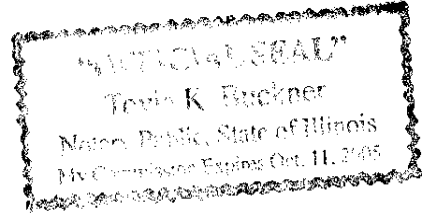 "OFFICIAL SEAL"
K. Buckner
Notary Public, State of Illinois
My Commission Expires Oct. 11, 2005